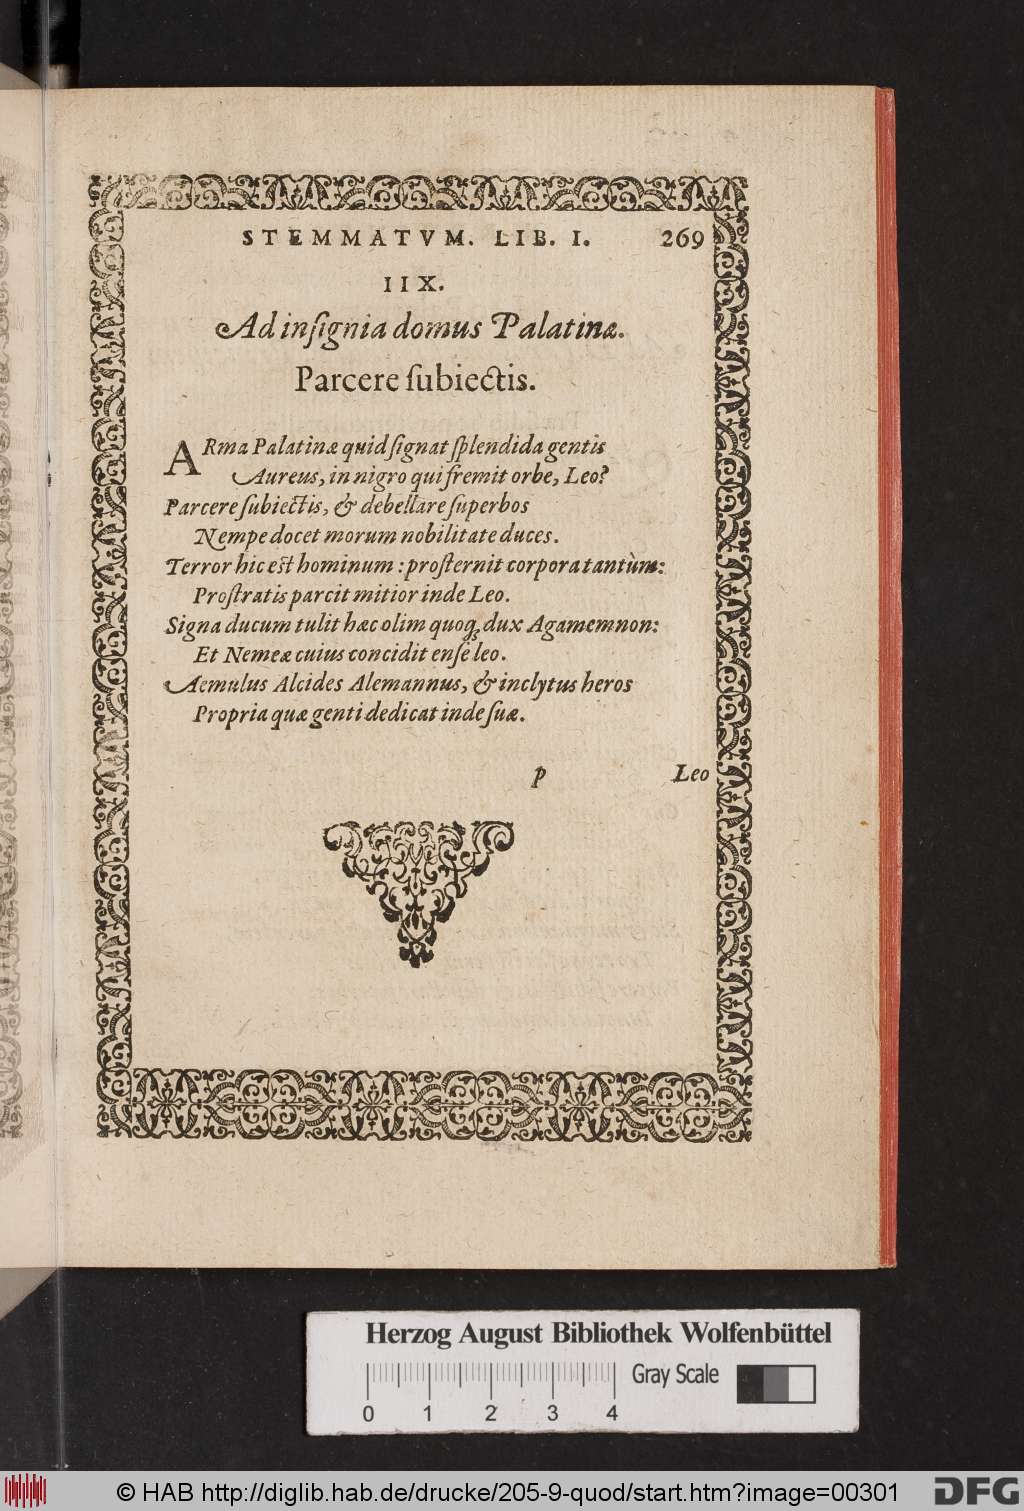 STEMMATVM. LIB. I. 269
IIX.
Ad inſignia domus Palatinæ.
Parcere ſubiectis.
ARma Palatinæ quid ſignat ſplendida gentis
Aureus, in nigro qui fremit orbe, Leo?
Parcere ſubiectis, & debellare ſuperbos
Nempe docet morum nobilitate duces.
Terror hic est hominum: proſternit corpora tantùm:
Proſtratis parcit mitior inde Leo.
Signa ducum tulit hæc olim quoq; dux Agamemnon:
Et Nemeæ cuius concidit enſe leo.
Aemulus Alcides Alemannus, & inclytus heros
Propria quæ genti dedicat inde ſuæ.
p Leo
Herzog August Bibliothek Wolfenbüttel
Gray Scale
0 1 2 3 4
© HAB http://diglib.hab.de/drucke/205-9-quod/start.htm?image=00301
DFG